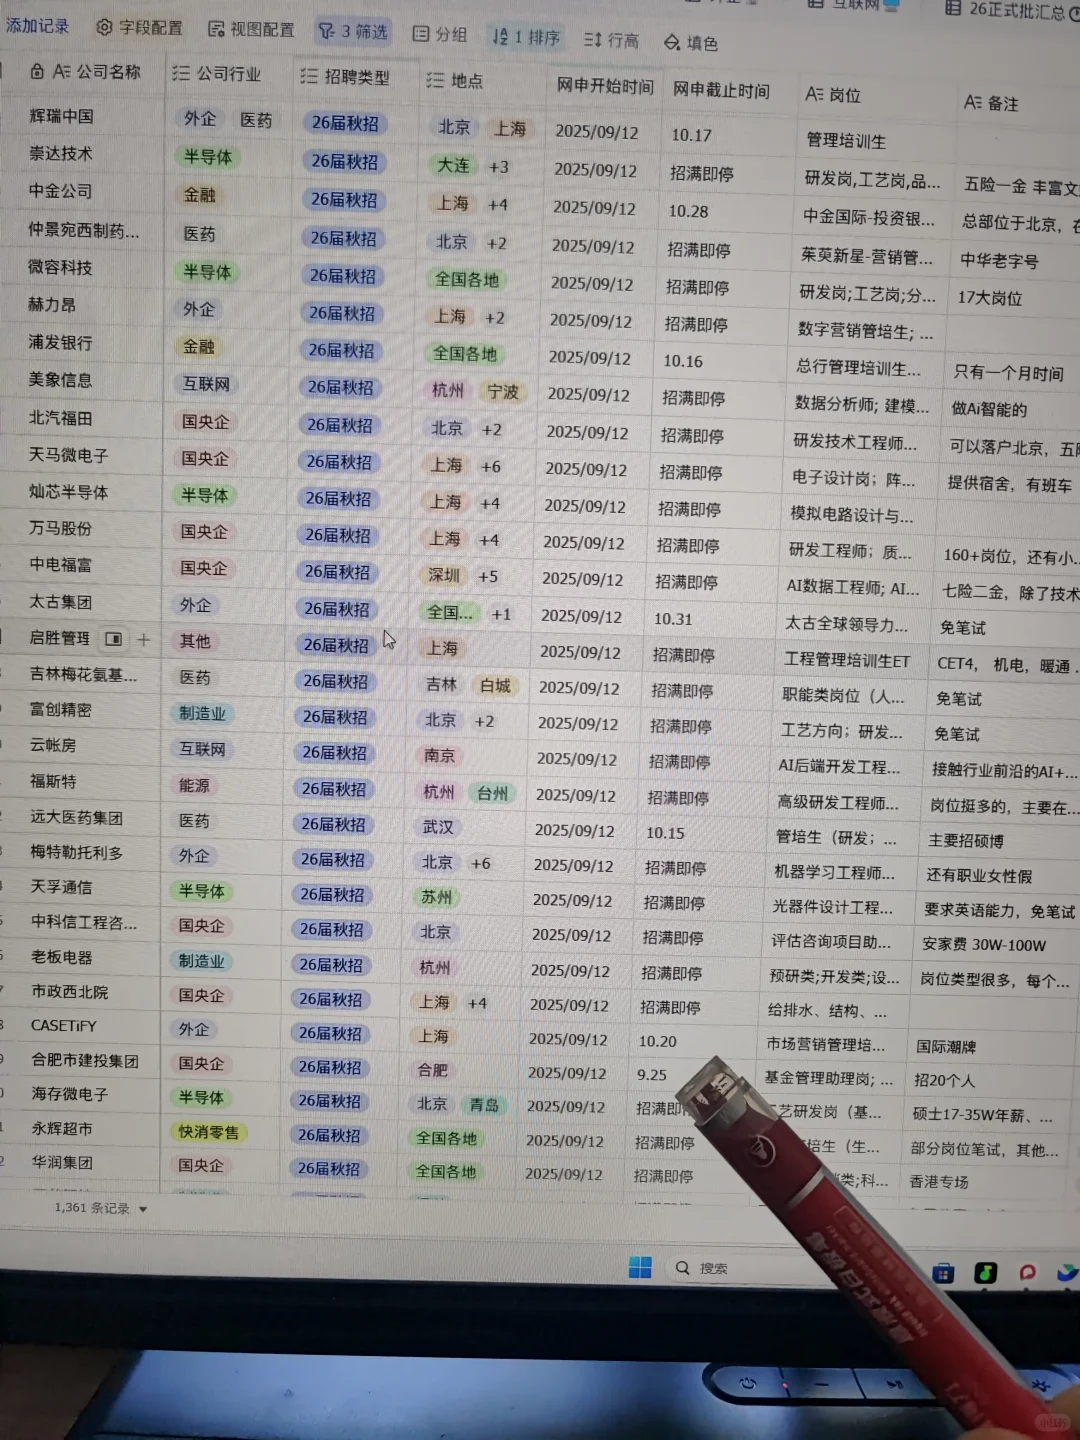 互联网
26正式批汇总
添加记录 字段配置 视图配置 3 筛选 分组 1 排序 行高 填色
公司名称 公司行业 招聘类型 地点 网申开始时间 网申截止时间 岗位 备注
辉瑞中国 外企 医药 26届秋招 北京 上海 2025/09/12 10.17 管理培训生
崇达技术 半导体 26届秋招 大连 +3 2025/09/12 招满即停 研发岗,工艺岗,品... 五险一金 丰富文
中金公司 金融 26届秋招 上海 +4 2025/09/12 10.28 中金国际-投资银... 总部位于北京，在
仲景宛西制药... 医药 26届秋招 北京 +2 2025/09/12 招满即停 茱萸新星-营销管... 中华老字号
微容科技 半导体 26届秋招 全国各地 2025/09/12 招满即停 研发岗;工艺岗;分... 17大岗位
赫力昂 外企 26届秋招 上海 +2 2025/09/12 招满即停 数字营销管培生; ...
浦发银行 金融 26届秋招 全国各地 2025/09/12 10.16 总行管理培训生... 只有一个月时间
美象信息 互联网 26届秋招 杭州 宁波 2025/09/12 招满即停 数据分析师; 建模... 做Ai智能的
北汽福田 国央企 26届秋招 北京 +2 2025/09/12 招满即停 研发技术工程师... 可以落户北京，五
天马微电子 国央企 26届秋招 上海 +6 2025/09/12 招满即停 电子设计岗；阵... 提供宿舍，有班车
灿芯半导体 半导体 26届秋招 上海 +4 2025/09/12 招满即停 模拟电路设计与...
万马股份 国央企 26届秋招 上海 +4 2025/09/12 招满即停 研发工程师；质... 160+岗位，还有小...
中电福富 国央企 26届秋招 深圳 +5 2025/09/12 招满即停 AI数据工程师; AI... 七险二金，除了技术
太古集团 外企 26届秋招 全国... +1 2025/09/12 10.31 太古全球领导力... 免笔试
启胜管理 其他 26届秋招 上海 2025/09/12 招满即停 工程管理培训生ET CET4， 机电，暖通 ...
吉林梅花氨基... 医药 26届秋招 吉林 白城 2025/09/12 招满即停 职能类岗位（人... 免笔试
富创精密 制造业 26届秋招 北京 +2 2025/09/12 招满即停 工艺方向；研发... 免笔试
云帐房 互联网 26届秋招 南京 2025/09/12 招满即停 AI后端开发工程... 接触行业前沿的AI+...
福斯特 能源 26届秋招 杭州 台州 2025/09/12 招满即停 高级研发工程师... 岗位挺多的，主要在...
远大医药集团 医药 26届秋招 武汉 2025/09/12 10.15 管培生（研发； ... 主要招硕博
梅特勒托利多 外企 26届秋招 北京 +6 2025/09/12 招满即停 机器学习工程师... 还有职业女性假
天孚通信 半导体 26届秋招 苏州 2025/09/12 招满即停 光器件设计工程... 要求英语能力，免笔试
中科信工程咨... 国央企 26届秋招 北京 2025/09/12 招满即停 评估咨询项目助... 安家费 30W-100W
老板电器 制造业 26届秋招 杭州 2025/09/12 招满即停 预研类;开发类;设... 岗位类型很多，每个...
市政西北院 国央企 26届秋招 上海 +4 2025/09/12 招满即停 给排水、结构、...
CASETiFY 外企 26届秋招 上海 2025/09/12 10.20 市场营销管理培... 国际潮牌
合肥市建投集团 国央企 26届秋招 合肥 2025/09/12 9.25 基金管理助理岗; ... 招20个人
海存微电子 半导体 26届秋招 北京 青岛 2025/09/12 招满即 艺研发岗（基... 硕士17-35W年薪、...
永辉超市 快消零售 26届秋招 全国各地 2025/09/12 招满即停 培生（生... 部分岗位笔试，其他...
华润集团 国央企 26届秋招 全国各地 2025/09/12 招满即停 类;科... 香港专场
1,361 条记录
搜索
直液式白板笔
小红书